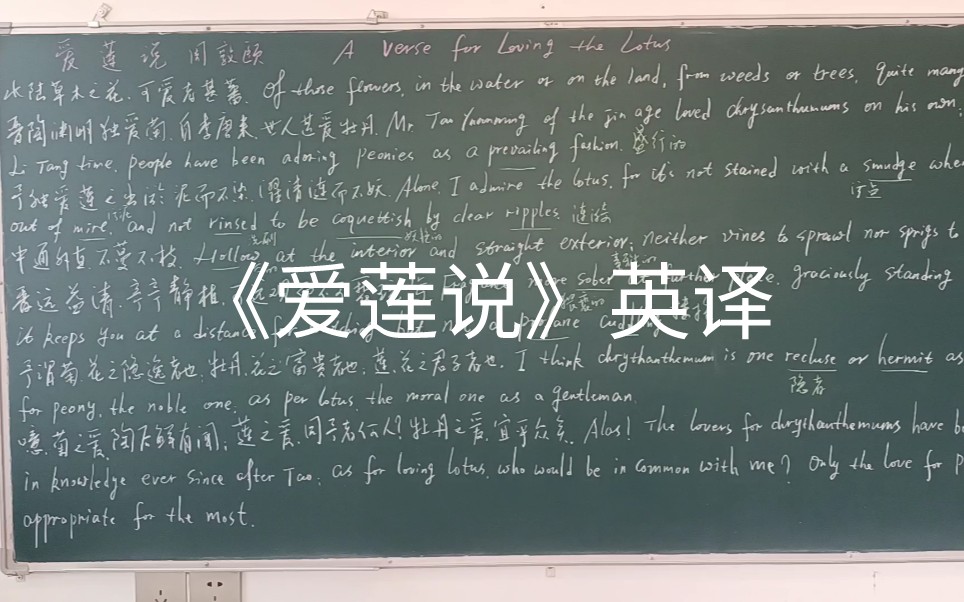 爱莲说 周敦颐 A Verse for Loving the Lotus
水陆草木之花，可爱者甚蕃. Of those flowers, in the water or on the land, from weeds or trees, quite many
晋陶渊明独爱菊，自李唐来，世人甚爱牡丹. Mr. Tao Yuanming of the Jin age loved chrysanthemums on his own;
Li Tang time, people have been adoring peonies as a prevailing fashion. 盛行的
予独爱莲之出淤泥而不染，濯清涟而不妖. Alone, I admire the lotus, for it's not stained with a smudge when
污点
out of mire, and not rinsed to be coquettish by clear ripples 涟漪
中通外直，不蔓不枝. Hollow at the interior and straight exterior; neither vines to sprawl nor sprigs to
香远益清，亭亭静植 more sober graciously standing
it keeps you at a distance
《爱莲说》英译
予谓菊，花之隐逸者也；牡丹，花之富贵者也；莲，花之君子者也. I think chrythanthemum is one recluse or hermit as
隐者
for peony, the noble one, as per lotus, the moral one as a gentleman.
噫，菊之爱，陶后鲜有闻；莲之爱，同予者何人？牡丹之爱，宜乎众矣. Alas! The lovers for chrythanthemums have be
in knowledge ever since after Tao; as for loving lotus, who would be in common with me? Only the love for p
appropriate for the most.